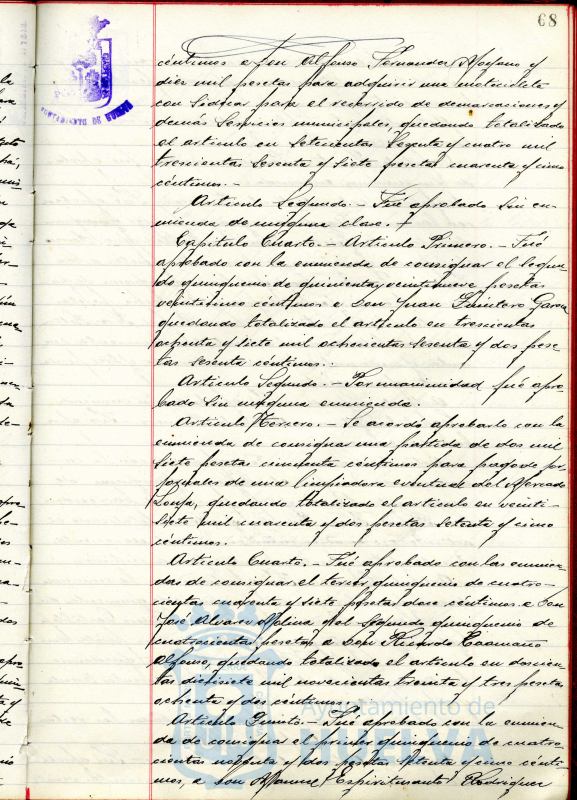 68
AYUNTAMIENTO DE HUELVA
céntimos a Don Alfonso Fernandez Moyano y
diez mil pesetas para adquirir una motocicleta
con Sidecar para el recorrido de demarcaciones y
demás Servicios municipales, quedando totalizado
el articulo en Setecientas Sesenta y cuatro mil
trescientas Sesenta y Siete pesetas cuarenta y cinco
céntimos.-
Articulo Segundo.- Fué aprobado Sin en-
mienda de ninguna clase.
Capitulo Cuarto.- Articulo Primero.- Fué
aprobado con la enmienda de consignar el Segun-
do quinquenio de quinientas veintinueve pesetas
veinticinco céntimos a Don Juan Quintero Garcia
quedando totalizado el articulo en trescientas
ochenta y Siete mil ochocientas Sesenta y dos pese-
tas Sesenta céntimos.
Articulo Segundo.- Por unanimidad fué apro-
bado Sin ninguna enmienda.
Articulo Tercero.- Se acordó aprobarlo con la
enmienda de consignar una partida de dos mil
Siete pesetas cincuenta céntimos para pago de
jornales de una limpiadora eventual del Mercado
Lonja, quedando totalizado el articulo en veinti-
Siete mil cuarenta y dos pesetas Setenta y cinco
céntimos.
Articulo Cuarto.- Fué aprobado con las enmien-
das de consignar el tercer quinquenio de cuatro-
cientas cuarenta y Siete pesetas doce céntimos a Don
José Alvarez Molina y el Segundo quinquenio de
cuatrocientas pesetas a Don Ricardo Caamaño
Alfonso, quedando totalizado el articulo en doscien-
tas diecisiete mil novecientas treinta y tres pesetas
ochenta y dos céntimos.
Articulo Quinto.- Fué aprobado con la enmien-
da de consignar el primer quinquenio de cuatro-
cientas noventa y dos pesetas Setenta y cinco cénti-
mos, a Don Manuel Espiritusanto Rodriguez
Ayuntamiento de
HUELVA